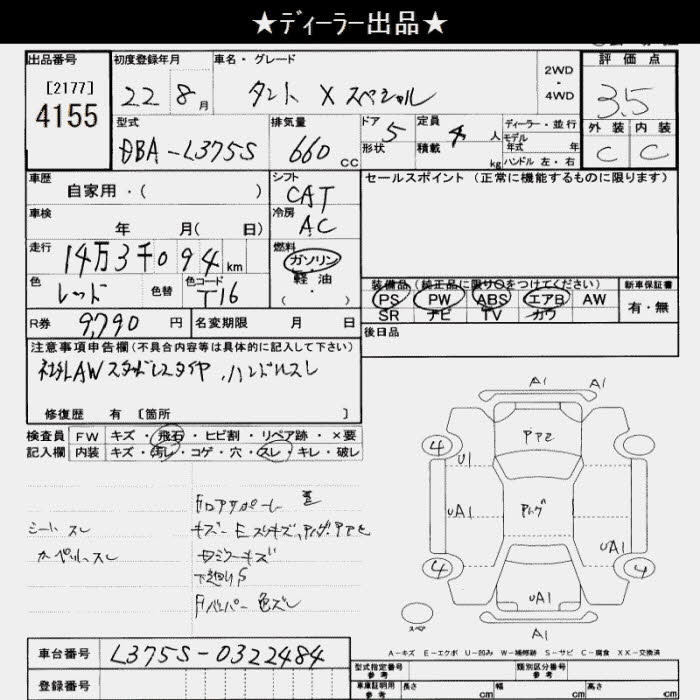 ★ディーラー出品★
出品番号
[2177]
4155
初度登録年月
22 8月
車名・グレード
タント X スペシャル
2WD
・
4WD
評価点
3.5
外装 内装
C C
型式
DBA-L375S
排気量
660 CC
ドア 5
形状
定員 4 人
積載 kg
ディーラー・並行
モデル
年式 年
ハンドル 左・右
車歴
自家用・( )
シフト
CAT
セールスポイント (正常に機能するものに限ります)
車検
年 月( 日)
冷房
AC
走行
14万3千094 km
燃料
ガソリン
軽油
( ・ )
色
レッド
色替
色コード
T16
装備品(純正品に限り○をつけてください)
PS PW ABS エアB AW
SR ナビ TV カワ
新車保証書
有・無
R券 9,790 円
名変期限 月 日
後日品
注意事項申告欄(不具合内容等は具体的に記入して下さい)
社外AWスタッドレスタイヤ、ハンドルスレ
修復歴 有 [箇所 ]
検査員
記入欄
FW キズ・飛石・ヒビ割・リペア跡・×要
内装 キズ・汚レ・コゲ・穴・スレ・キレ・破レ
シート スレ
下廻りS
Fバンパー色ズレ
A1 A1
4
U1
UA1
UA1
4 4
UA1
スペア
A1
A-キズ E-エクボ U-凹み W-補修跡 S-サビ C-腐食 XX-交換済
車台番号 L375S-0322484
登録番号
型式指定番号
参考
類別区分番号
参考
車庫証明用
参考
長さ cm 幅 cm 高さ cm